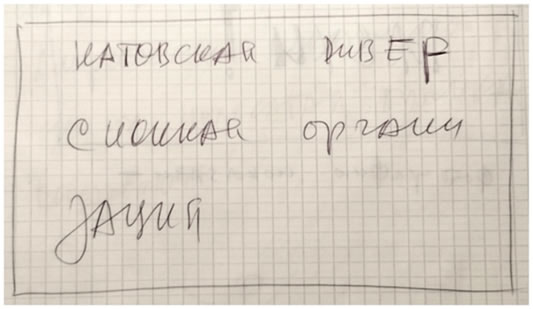 НАТОВСКАЯ ДИВЕР
СИОННАЯ ОРГАНИ
ЗАЦИЯ